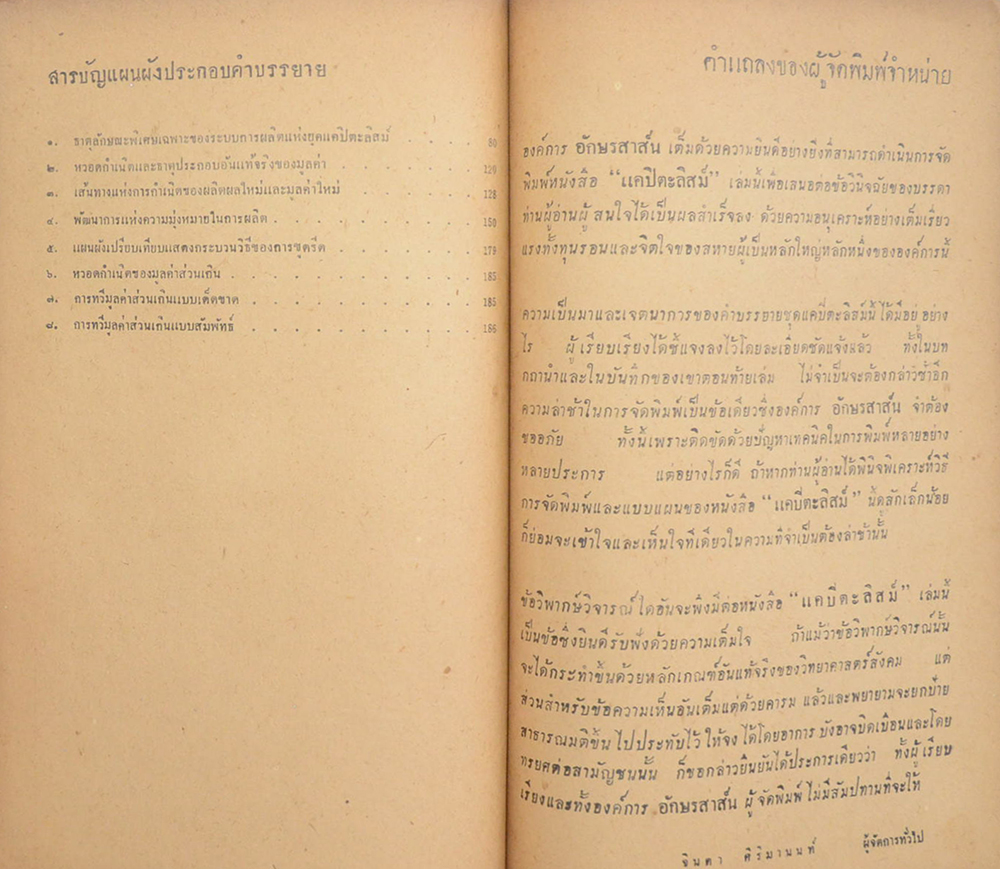 สารบัญแผนผังประกอบคำบรรยาย
๑. ธาตุลักษณะพิเศษเฉพาะของระบบการผลิตแห่งยุคแคปิตะลิสม์ . . . . 80
๒. หวอดกำเนิดและธาตุประกอบอันแท้จริงของมูลค่า . . . . . . 126
๓. เส้นทางแห่งการกำเนิดของผลิตผลใหม่และมูลค่าใหม่ . . . . . 128
๔. พัฒนาการแห่งความมุ่งหมายในการผลิต . . . . . . . . 150
๕. แผนผังเปรียบเทียบแสดงกระบวนวิธีของการขูดรีด . . . . . . 179
๖. หวอดกำเนิดของมูลค่าส่วนเกิน . . . . . . . . . . 185
๗. การทวีมูลค่าส่วนเกินแบบเด็ดขาด . . . . . . . . . 185
๘. การทวีมูลค่าส่วนเกินแบบสัมพัทธ์ . . . . . . . . . 186
คำแถลงของผู้จัดพิมพ์จำหน่าย
องค์การ อักษรสาส์น เต็มด้วยความยินดีอย่างยิ่งที่สามารถดำเนินการจัด
พิมพ์หนังสือ “แคปิตะลิสม์” เล่มนี้เพื่อเสนอต่อข้อวินิจฉัยของบรรดา
ท่านผู้อ่านผู้สนใจได้เป็นผลสำเร็จลง ด้วยความอนุเคราะห์อย่างเต็มเรี่ยว
แรงทั้งทุนรอนและจิตใจของสหายผู้เป็นหลักใหญ่หลักหนึ่งขององค์การนี้
ความเป็นมาและเจตนาการของคำบรรยายชุดแคปิตะลิสม์นี้ได้มีอยู่อย่าง
ไร ผู้เรียบเรียงได้ชี้แจงลงไว้โดยละเอียดชัดแจ้งแล้ว ทั้งในบท
กถานำและในบันทึกของเขาตอนท้ายเล่ม ไม่จำเป็นจะต้องกล่าวซ้ำอีก
ความล่าช้าในการจัดพิมพ์เป็นข้อเดียวซึ่งองค์การ อักษรสาส์น จำต้อง
ขออภัย ทั้งนี้เพราะติดขัดด้วยปัญหาเทคนิคในการพิมพ์หลายอย่าง
หลายประการ แต่อย่างไรก็ดี ถ้าหากท่านผู้อ่านได้พินิจพิเคราะห์วิธี
การจัดพิมพ์และแบบแผนของหนังสือ “แคปิตะลิสม์” นี้ดสักเล็กน้อย
ก็ย่อมจะเข้าใจและเห็นใจทีเดียวในความที่จำเป็นต้องล่าช้านั้น
ข้อวิพากษ์วิจารณ์ใดอันจะพึงมีต่อหนังสือ “แคปิตะลิสม์” เล่มนี้
เป็นข้อซึ่งยินดีรับฟังด้วยความเต็มใจ ถ้าแม้ว่าข้อวิพากษ์วิจารณ์นั้น
จะได้กระทำขึ้นด้วยหลักเกณฑ์อันแท้จริงของวิทยาศาสตร์สังคม แต่
ส่วนสำหรับข้อความเห็นอันเต็มแต่ด้วยคารม แล้วและพยายามจะยกป้าย
สาธารณมติขึ้นไปประทับไว้ให้จงได้โดยอาการบังอาจบิดเบือนและโดย
ทรยศต่อสามัญชนนั้น ก็ขอกล่าวยืนยันได้ประการเดียวว่า ทั้งผู้เรียบ
เรียงและทั้งองค์การ อักษรสาส์น ผู้จัดพิมพ์ ไม่มีสัมปทานที่จะให้
จินดา ศิริมานนท์ ผู้จัดการทั่วไป